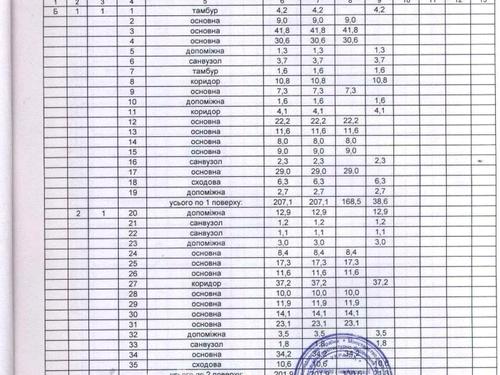 1 2 3 4 5 6 7 8 9 10 11 12 13
Б 1 1 1 тамбур 4,2 4,2 4,2
2 основна 9,0 9,0 9,0
3 основна 41,8 41,8 41,8
4 основна 30,6 30,6 30,6
5 допоміжна 1,3 1,3 1,3
6 санвузол 3,7 3,7 3,7
7 тамбур 1,6 1,6 1,6
8 коридор 10,8 10,8 10,8
9 основна 7,3 7,3 7,3
10 допоміжна 1,6 1,6 1,6
11 коридор 4,1 4,1 4,1
12 основна 22,2 22,2 22,2
13 основна 11,6 11,6 11,6
14 основна 8,0 8,0 8,0
15 основна 9,0 9,0 9,0
16 санвузол 2,3 2,3 2,3
17 основна 29,0 29,0 29,0
18 сходова 6,3 6,3 6,3
19 допоміжна 2,7 2,7 2,7
усього по 1 поверху: 207,1 207,1 168,5 38,6
2 1 20 допоміжна 12,9 12,9 12,9
21 санвузол 1,2 1,2 1,2
22 санвузол 1,1 1,1 1,1
23 допоміжна 3,0 3,0 3,0
24 основна 8,4 8,4 8,4
25 основна 17,3 17,3 17,3
26 основна 11,6 11,6 11,6
27 коридор 37,2 37,2 37,2
28 основна 10,0 10,0 10,0
29 основна 11,9 11,9 11,9
30 основна 14,1 14,1 14,1
31 основна 23,1 23,1 23,1
32 допоміжна 3,5 3,5 3,5
33 санвузол 1,8 1,8 1,8
34 основна 34,2 34,2 34,2
35 сходова 10,6 10,6 10,6
усього по 2 поверху: 201,9 201,9